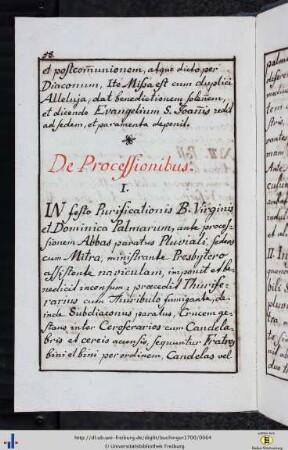 58.
et postcom̃unionem, atque dicto per
Diaconum, Ite Missa est cum duplici
Alleluja, dat benedictionem solem̃em,
et dicendo Evangelium S. Joañis redit
ad sedem, et paramenta deponit.
De Processionibus.
I.
IN festo Purificationis B. Virginis
et Dominica Palmarum, ante proces-
sionem Abbas paratus Pluviali, sedens
cum Mitra, ministrante Presbytero
assistente naviculam, imponit et be-
nedicit incensum; præcedit Thurife-
rarius cum Thuribulo fumigante, de-
inde Subdiaconus paratus, Crucem ge-
stans inter Ceroferarios cum Candela-
bris et cereis accensis, sequuntur Fratres
bini et bini per ordinem, Candelas vel
http://dl.ub.uni-freiburg.de/diglit/buchinger1700/0064
© Universitätsbibliothek Freiburg